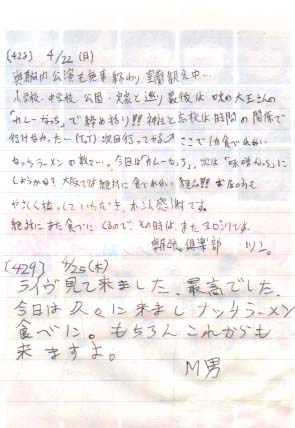 [428] 4/22 (月)
室蘭内公演も無事終わり、室蘭観光中…
小学校、中学校、公園、実家と巡り最後は味の大王さんの
「カレーなっち」で締め括り!!! 神社と高校は時間の関係で
行けなかった…(T_T) 次回行ってやる ここでしか食べれない
なっちラーメンの数々…。今日は「カレーなっち」、次は「味噌なっち」に
しようかな? 大阪では絶対に食べれない 絶品!!! お店の方も
やさしく接していただき、ホント感謝です。
絶対にまた食べにくるので、その時は、またヨロシクです。
倶楽部
[429] 4/25(木)
ライヴ見て来ました、最高でした、
今日は久々に来ましナッチラーメン
食べに。もちろんこれからも
来ますよ。
M男